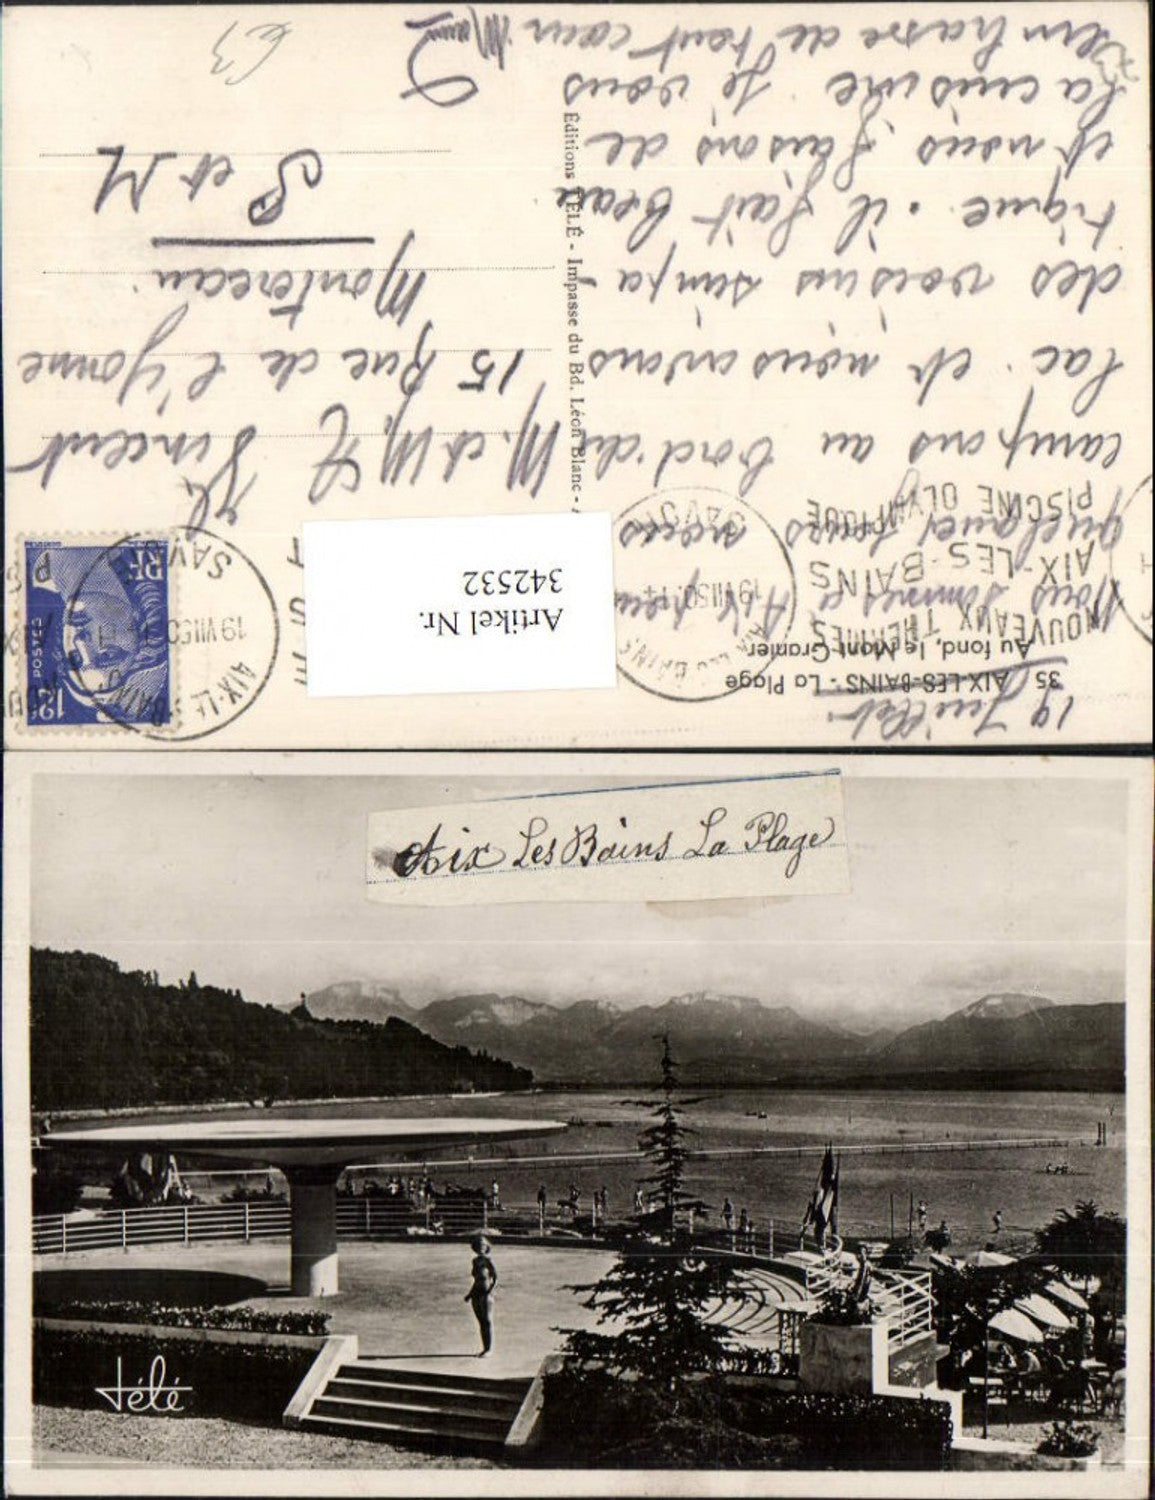 19 Juillet.
35 AIX-LES-BAINS - La Plage
Au fond, le Mont Granier
Nous sommes à
quelques
nous
campons au bord du
lac. et nous avons
des voisins sympa-
tique. il fait beau
et nous faisons de
la cuisine. Je vous
embrasse de tout cœur
NOUVEAUX THERMES
AIX-LES-BAINS
PISCINE OLYMPIQUE
AIX-LES-BAINS
19 VII 50
SAVOIE
Editions TÉLÉ - Impasse du Bd. Léon Blanc -
AIX-LES-BAINS
19 VII 50
SAVOIE
POSTES
RF
12F
Artikel Nr.
342532
M. et M.
Vincent
15 Rue de l'Yonne
Montereau
S et M
63
Aix Les Bains La Plage
télé